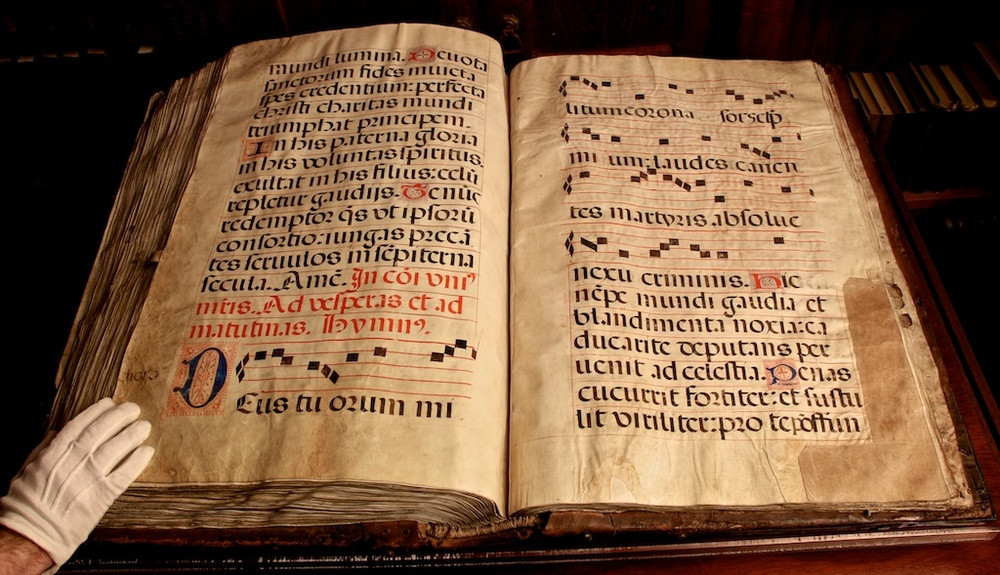 mundi lumina. Deuota
sanctorum fides inuicta
spes credentium: perfecta
christi charitas mundi
triumphat principem.
In his paterna gloria
in his voluntas spiritus.
exultat in his filius: celū
repletur gaudijs. Te nūc
redemptor q̄s vt ipsorū
consortio: iungas preca
tes seruulos in sēpiterna
secula. Amē. In cōi vniꝰ
mr̄is. Ad vesperas et ad
matutinas. Hymnꝰ.
Deus tu orum mi
litum corona sors et p̄
mi um: laudes canen
tes martyris absolue
nexu criminis. Hic
nēpe mundi gaudia et
blandimenta noxia: ca
duca rite deputans per
uenit ad celestia. Penas
cucurrit fortiter: et sustu
lit viriliter: pro te